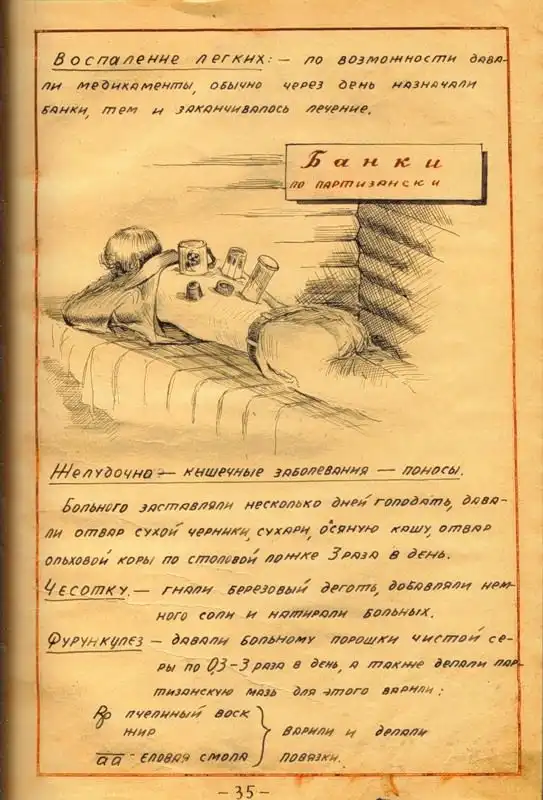 Воспаление легких: – по возможности дава-
ли медикаменты, обычно через день назначали
банки, тем и заканчивалось лечение.
Банки
по партизански
Желудочно – кишечные заболевания – поносы.
Больного заставляли несколько дней голодать, дава-
ли отвар сухой черники, сухари, овсяную кашу, отвар
ольховой коры по столовой ложке 3 раза в день.
Чесотку. – гнали березовый деготь, добавляли нем-
ного соли и натирали больных.
Фурункулез – давали больному порошки чистой се-
ры по 0,3 – 3 раза в день, а также делали пар-
тизанскую мазь для этого варили:
Rp пчелиный воск
жир
варили и делали
аа – еловая смола
повязки.
– 35 –